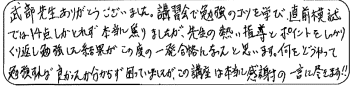 武部先生ありがとうございました。講習会で勉強のコツを学び、直前模試
では14点しかとれず本当に焦りましたが、先生の熱い指導とポイントをしっかり
くり返し勉強した結果がこの度の一発合格になったと思います。何をどうやって
勉強すれば良かったか分からず困っていましたがこの講座は本当に感謝の一言に尽きます!!